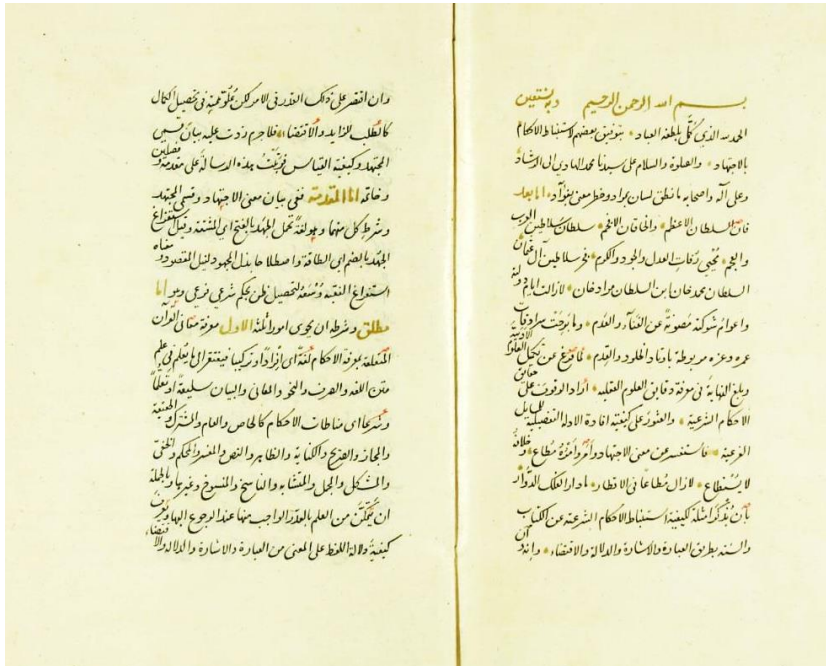 بسم الله الرحمن الرحيم وبه نستعين
الحمد لله الذي كلّ بلطفه العباد بتوفيق بعضهم لاستنباط الاحكام
بالاجتهاد والصلوة والسلام على سيدنا محمد الهادي الى الرشاد
وعلى آله واصحابه ما نطق لسان بمراد وخطر معنى بفؤاد اما بعد
فان السلطان الاعظم والخاقان الافخم سلطان سلاطين العرب
والعجم محيي رفات العدل والجود والكرم فخر سلاطين آل عثمان
السلطان محمد خان ابن السلطان مراد خان لا زالت ايام دولته
واعوام شوكته مصونة عن الفناء والعدم وما برحت سرادقات
عمره وعزه مربوطة باوتاد الخلود والقدم لما فرغ عن تكميل العلوم الادبية
وبلغ النهاية في معرفة دقايق العلوم العقليه اراد الوقوف على حقايق
الاحكام الشرعية والعثور على كيفية افادة الادلة التفصيلية للمسايل
الفرعية فاستفسر عن معنى الاجتهاد وامر وامره مطاع وخلافه
لا يستطاع لا زال مطاعا في الاقطار ما دار الفلك الدوار
بان يذكر امثلة لكيفية استنباط الاحكام الشرعية عن الكتاب
والسنه بطريق العبارة والاشارة والدلالة والاقتضاء وانه
وان اقتصر على ذلك القدر في الامر لكن علو همته في تحصيل الكمال
كالطلب للزايد والاقتضاء فلا جرم زدت عليه بيان
المجتهد وكيفية القياس فرتبت هذه الرسالة على مقدمة وفصلين
وخاتمة اما المقدمة ففي بيان معنى الاجتهاد وقسمي المجتهد
وشرط كل منهما وهو لغة تحمل الجهد بالفتح اي المشقة وقيل استفراغ
الجهد بالضم اي الطاقة واصطلاحا بذل المجهود لنيل المقصود ومعناه
استفراغ الفقيه وسعه لتحصيل ظن بحكم شرعي فرعي وهو اما
مطلق وشرطه ان يحوي امورا ثلثة الاول معرفة معاني القرآن
المتعلقة بمعرفة الاحكام لغة اي افرادا وتركيبا فيفتقر الى ما يعلم في علم
متن اللغه والصرف والنحو والمعاني والبيان سليقة او تعلما
وشرعا اي مناطات الاحكام كالخاص والعام والمشترك والحقيقة
والمجاز والصريح والكناية والظاهر والنص والمفسر والمحكم والخفي
والمشكل والمجمل والمتشابه والناسخ والمنسوخ وغيرها وبالجملة
ان يتمكن من العلم بالقدر الواجب منها عند الرجوع اليها ويعرف
كيفية دلالة اللفظ على المعنى من العبارة والاشارة والدلالة والاقتضاء